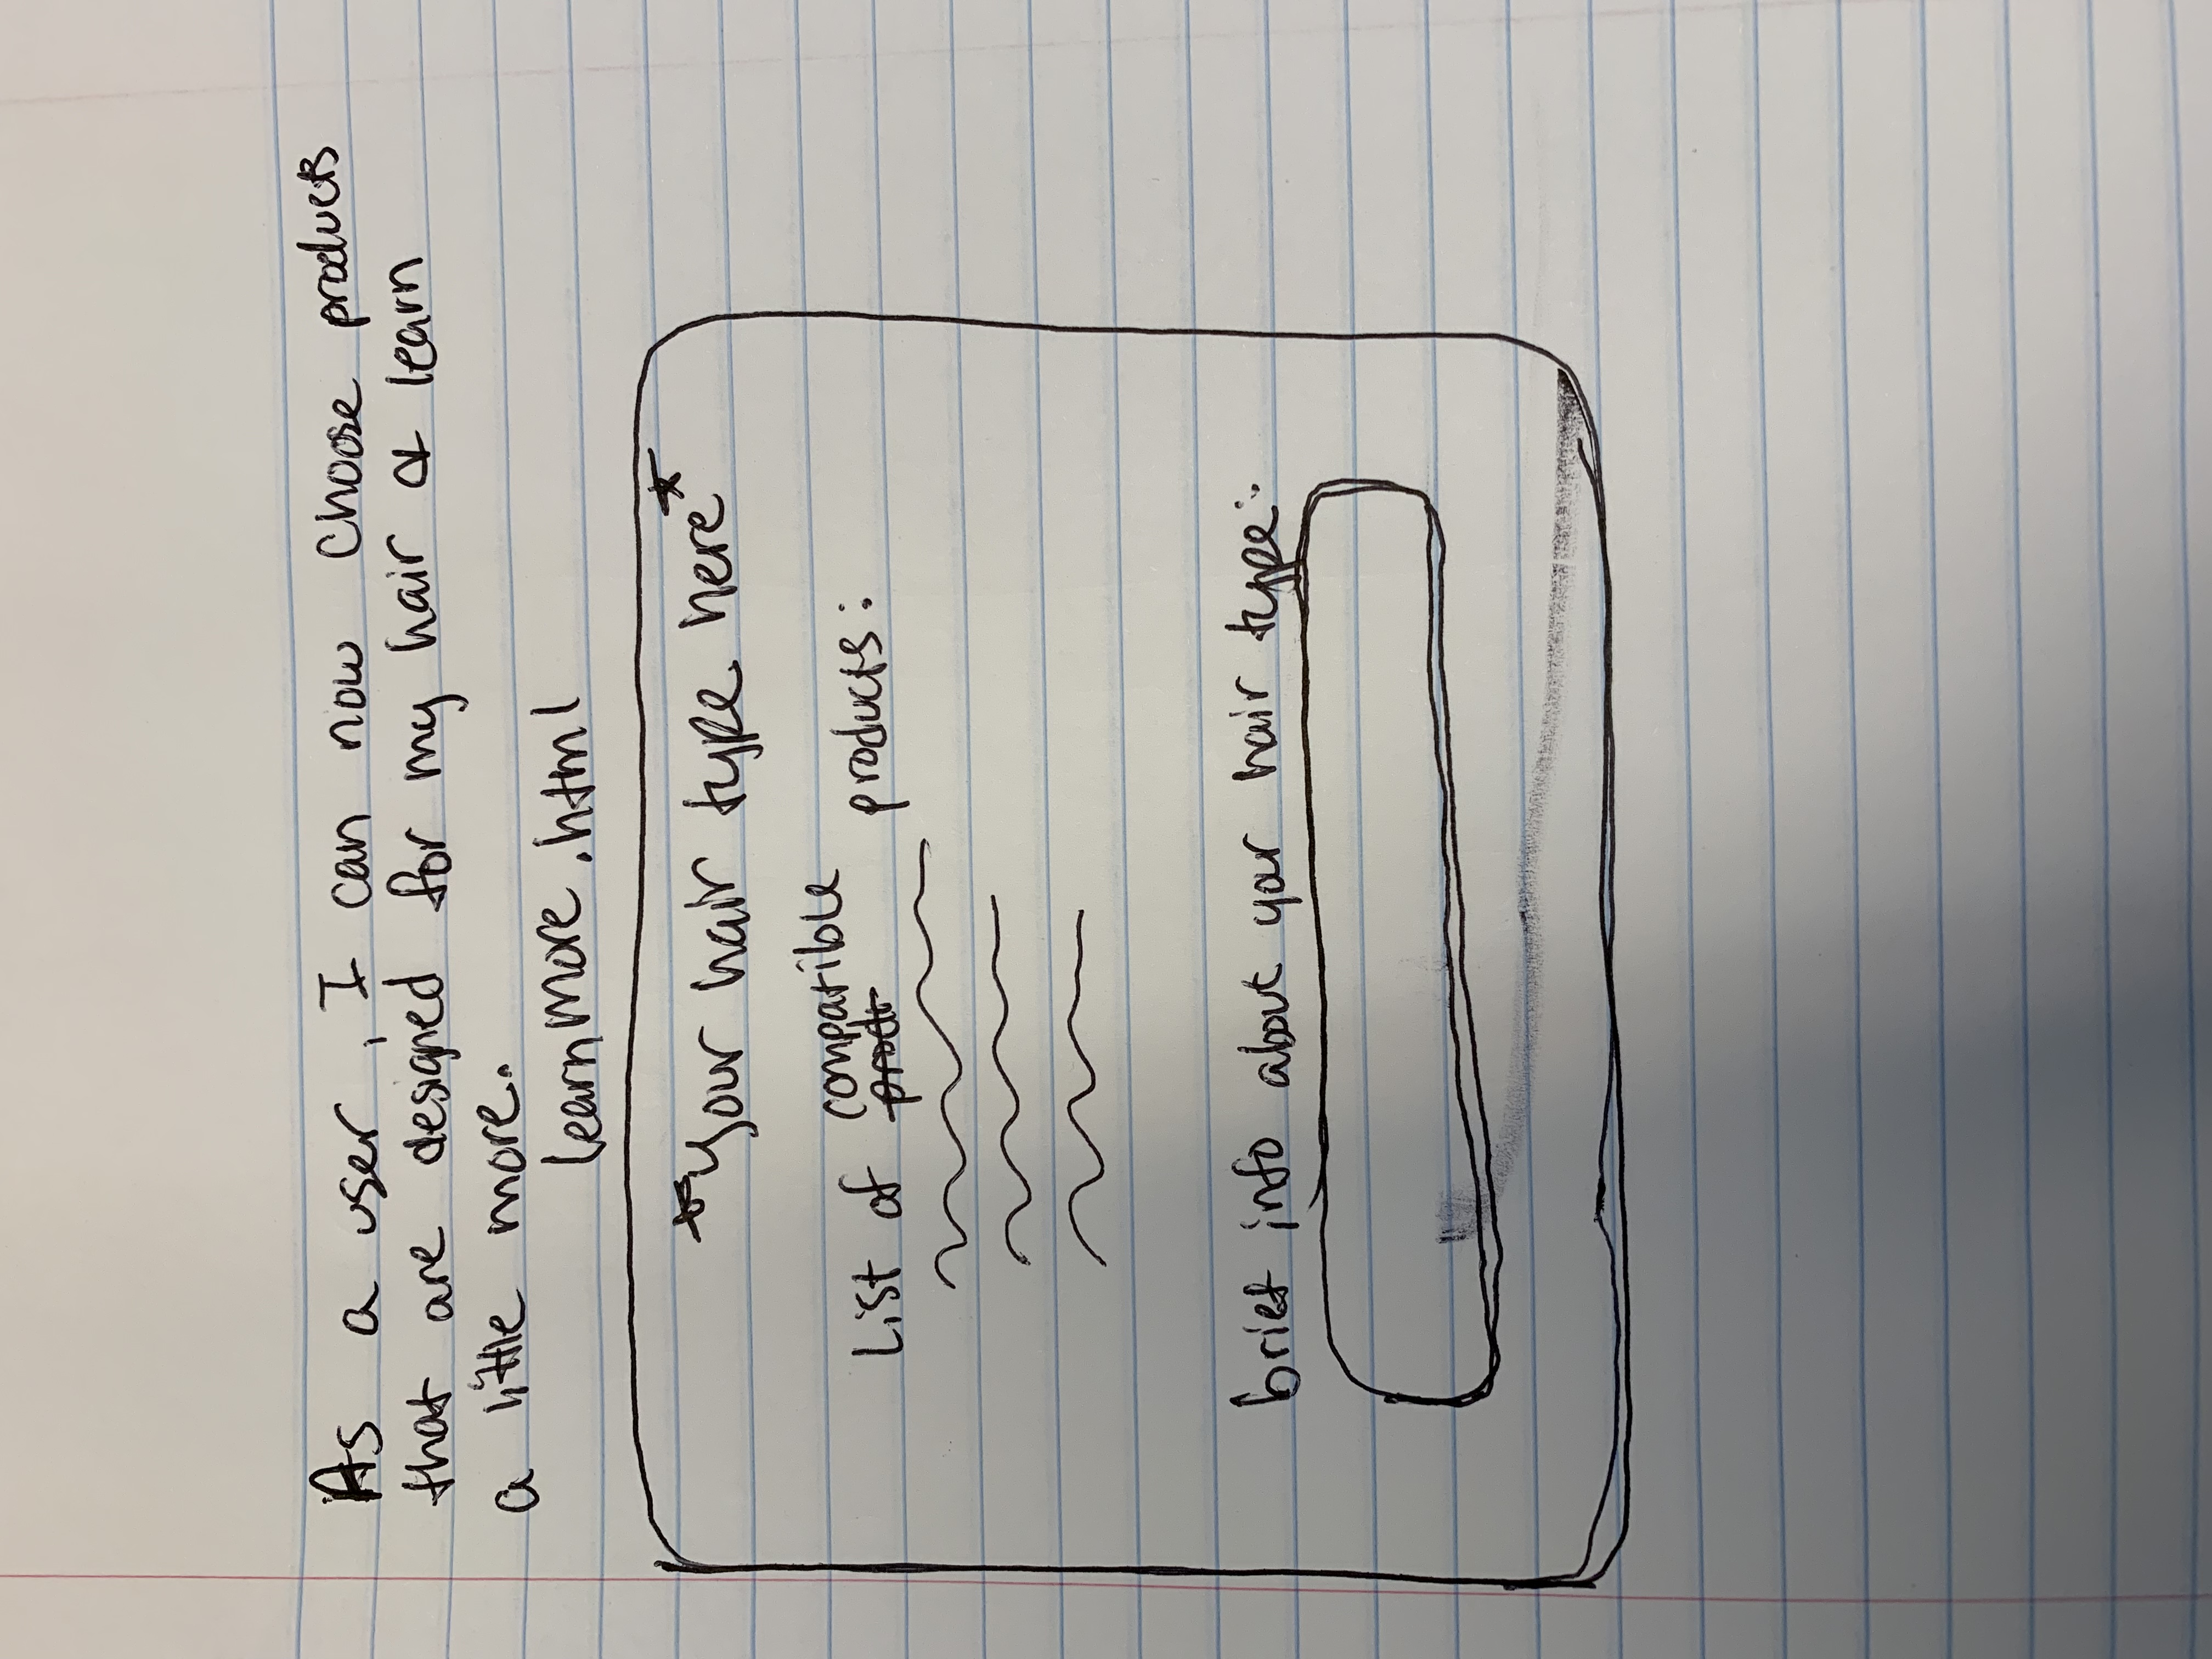 As a user, I can now choose products
that are designed for my hair & learn
a little more.
learnMore.html
*Your hair type here*
compatible
List of products:
brief info about your hair type: